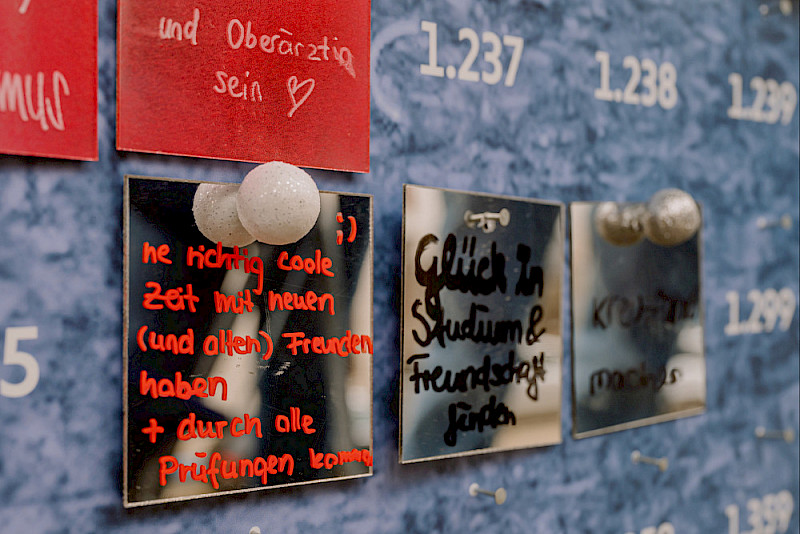 und Oberärztin
sein ♡
1.237
1.238
1.239
;)
ne richtig coole
Zeit mit neuen
(und alten) Freunden
haben
+ durch alle
Prüfungen kommen
Glück In
Studium &
Freundschaft
finden
machen
5
1.299
1.359